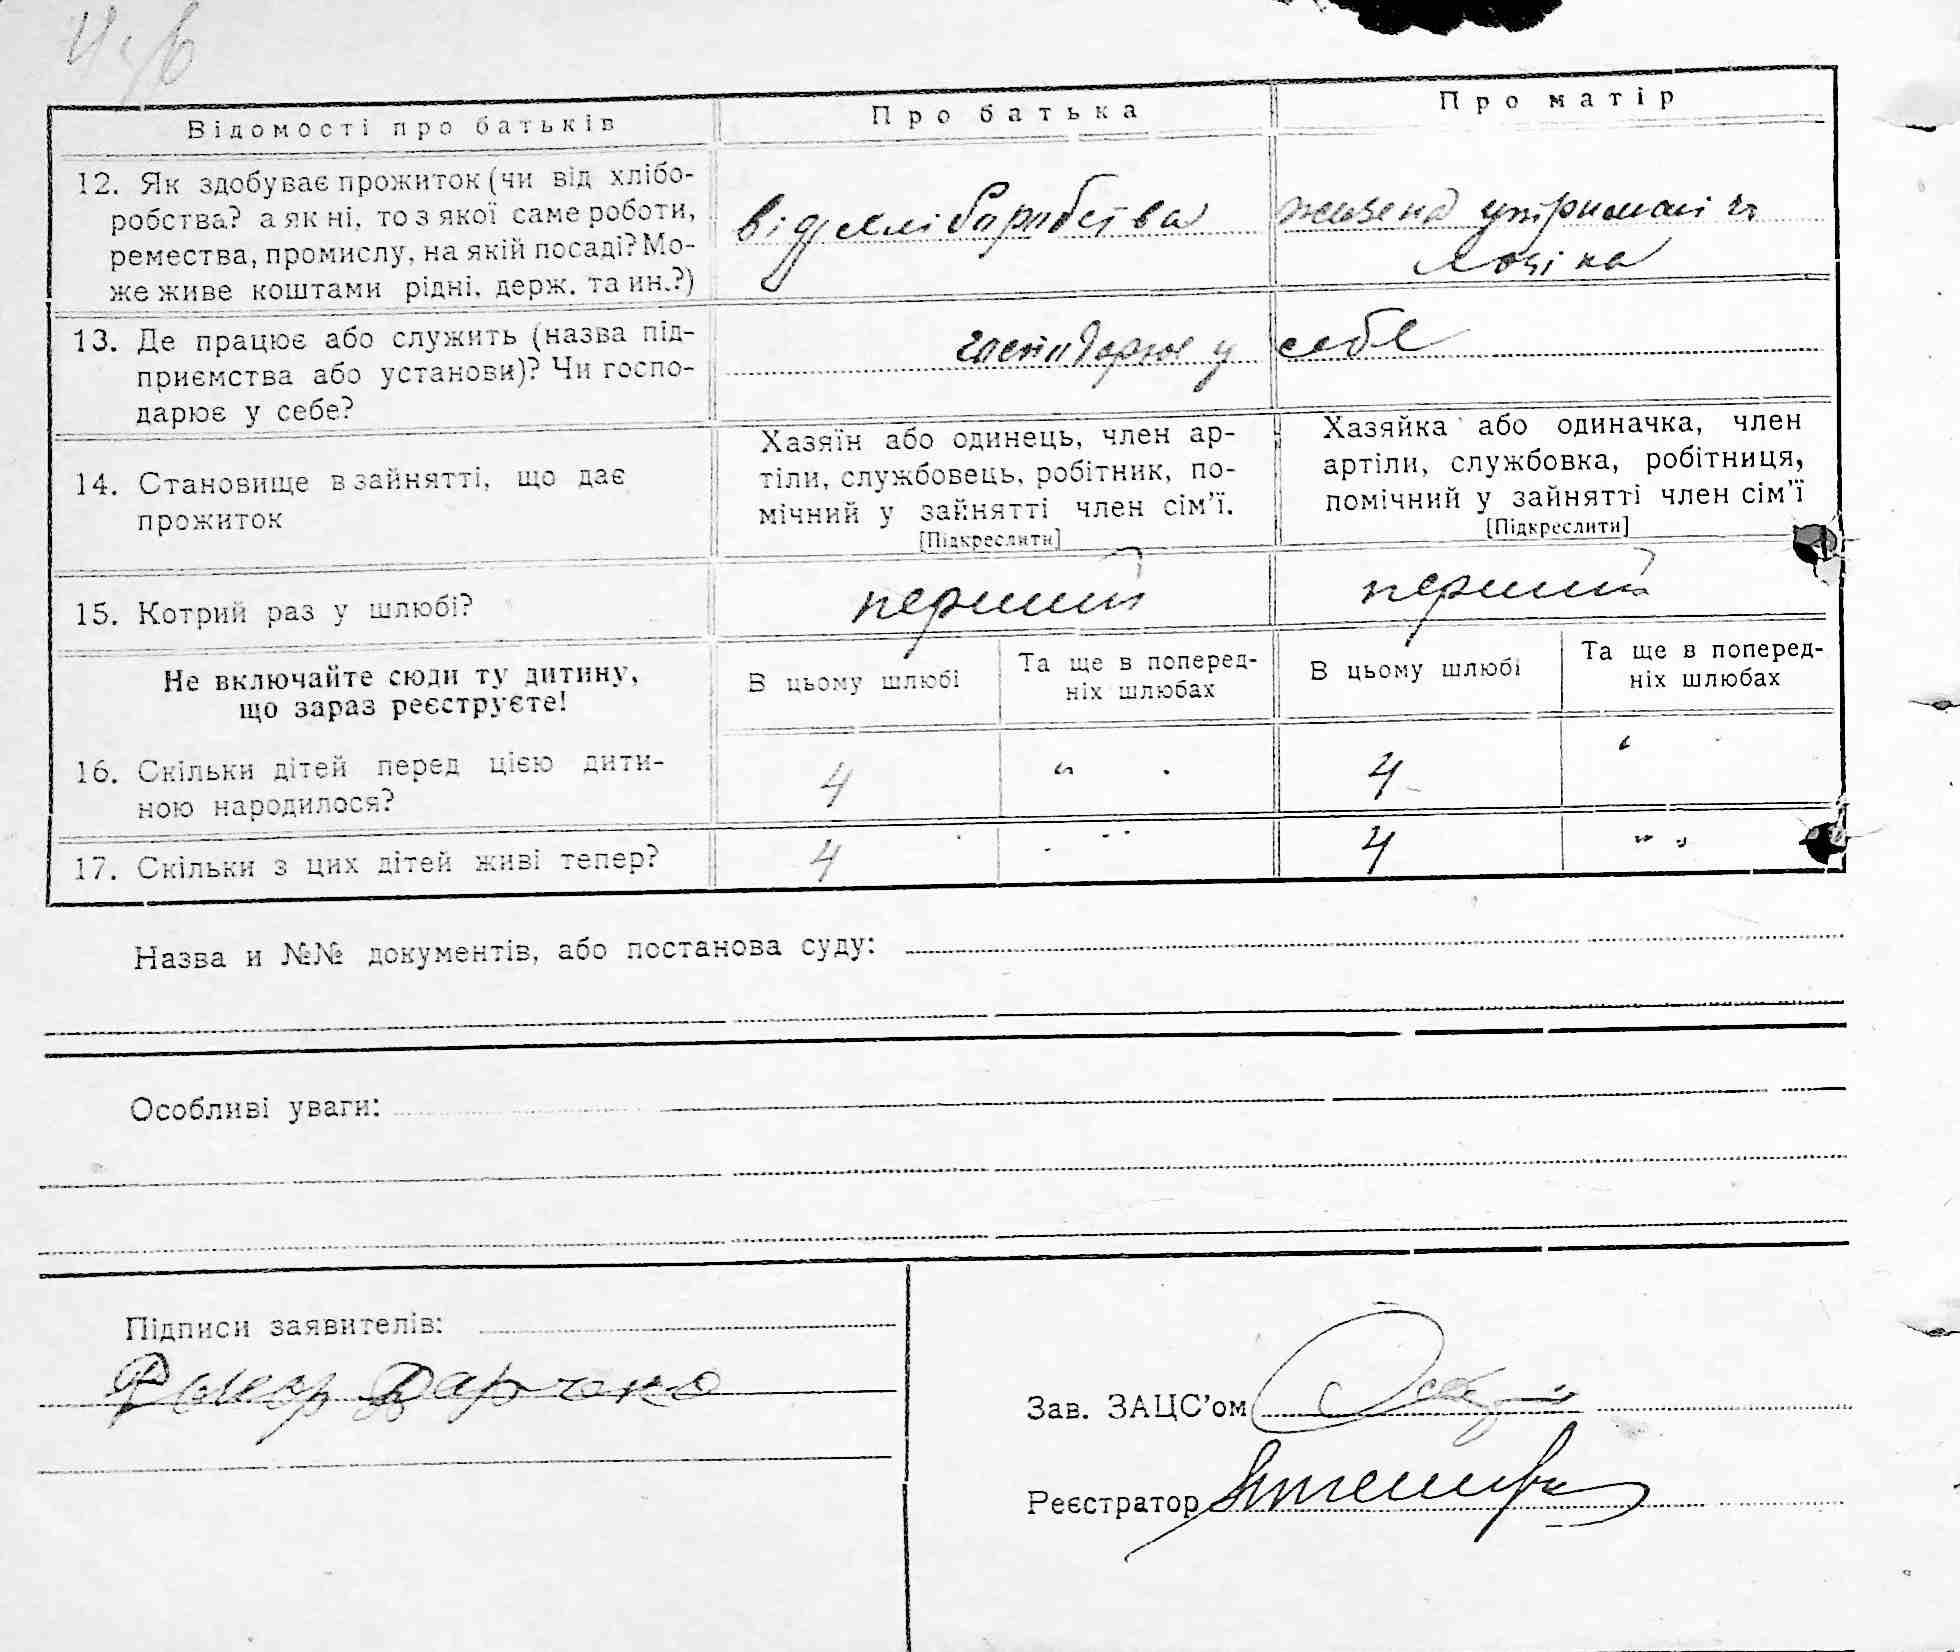 Відомості про батьків
Про батька
Про матір
12. Як здобуває прожиток (чи від хлібо-
робства? а як ні, то з якої саме роботи,
ремества, промислу, на якій посаді? Мо-
же живе коштами рідні, держ. та ин.?)
від хліборобства
на
13. Де працює або служить (назва під-
приємства або установи)? Чи госпо-
дарює у себе?
господарює у себе
14. Становище в зайнятті, що дає
прожиток
Хазяїн або одинець, член ар-
тіли, службовець, робітник, по-
мічний у зайнятті член сім'ї.
[Підкреслити]
Хазяйка або одиначка, член
артіли, службовка, робітниця,
помічний у зайнятті член сім'ї
[Підкреслити]
15. Котрий раз у шлюбі?
перший
перший
Не включайте сюди ту дитину,
що зараз реєструєте!
В цьому шлюбі
Та ще в поперед-
ніх шлюбах
В цьому шлюбі
Та ще в поперед-
ніх шлюбах
16. Скільки дітей перед цією дити-
ною народилося?
4
"
4
"
17. Скільки з цих дітей живі тепер?
4
"
4
"
Назва и №№ документів, або постанова суду:
Особливі уваги:
Підписи заявителів:
Зав. ЗАЦС'ом
Реєстратор